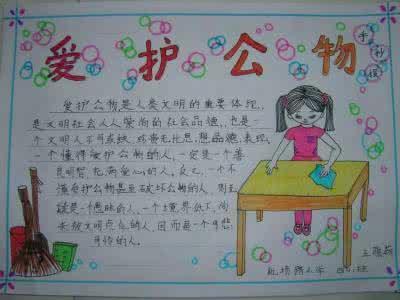 爱护公物
手抄报
爱护公物是人类文明的重要体现,
是文明社会人人需尚的社会品德,也是一
个文明人不可或缺
思想品德,表现,
一个懂得爱护公物的人,一定是一个善
良明智,充满爱心的人,反之,一个不
懂爱护公物甚至破坏公物的人,则无
疑是一个愚昧的人,一个境界低下,尚
未被文明点化的人,因而是一个可悲
可怜的人.